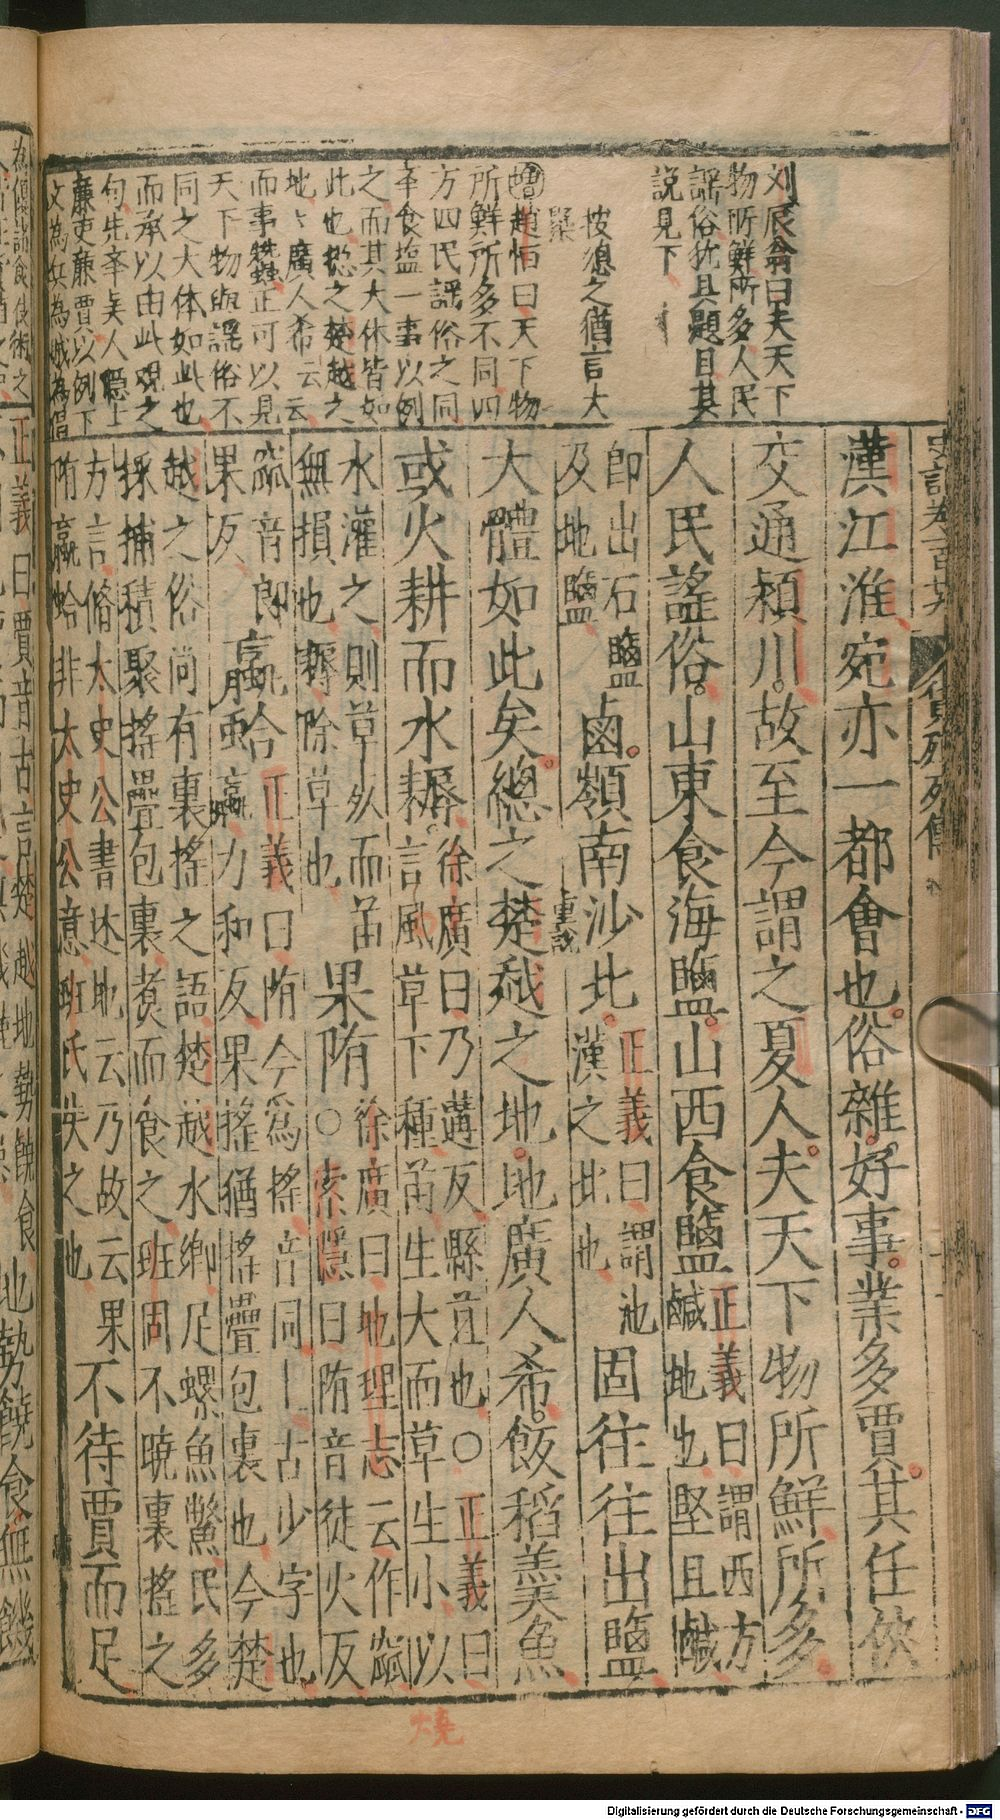 史記卷百廿九 貨殖列傳
刘辰翁曰夫天下
物所鮮所多人民
謡俗犹具題目其
說見下
按總之猶言大
槩
增趙恒曰天下物
所鮮所多不同四
方四民謡俗之同
辛食塩一事以例
之而其大体皆如
此也總之楚越之
地〻廣人希云云
正可以見
天下物與謡俗不
同之大体如此也
而承以由此观之
句先辛矣人隱士
廉吏廉賈以例下
文為兵為賊為倡
漢江淮宛亦一都會也俗雜好事業多賈其任俠
交通潁川故至今謂之夏人夫天下物所鮮所多
人民謡俗山東食海鹽山西食鹽 正義曰謂西方鹹地也堅且鹹
即出石鹽及池鹽 鹵嶺南沙北 正義曰謂池漢之北也 固往往出鹽
重說
大體如此矣總之楚越之地地廣人希飯稻羹魚
或火耕而水耨 徐廣曰乃遘反縣苴也○正義曰言風草下種苗生大而草生小以
水灌之則草死而苗無損也耨除草也 果隋 徐廣曰地理志云作蓏○索隱曰隋音徒火反
蓏音郎果反 蠃蛤 正義曰隋今為搖音同上古少字也蠃力和反果搖猶搖疊包裹也今楚
越之俗尚有裹搖之語楚越水鄉足螺魚鱉民多採捕積聚搖疊包裹煮而食之班固不曉裹搖之
方言脩太史公書述地云乃故云果隋蠃蛤非太史公意班氏失之也 不待賈而足
正義曰賈音古言楚越地勢饒食 地勢饒食無饑
燒
Digitalisierung gefördert durch die Deutsche Forschungsgemeinschaft - DFG